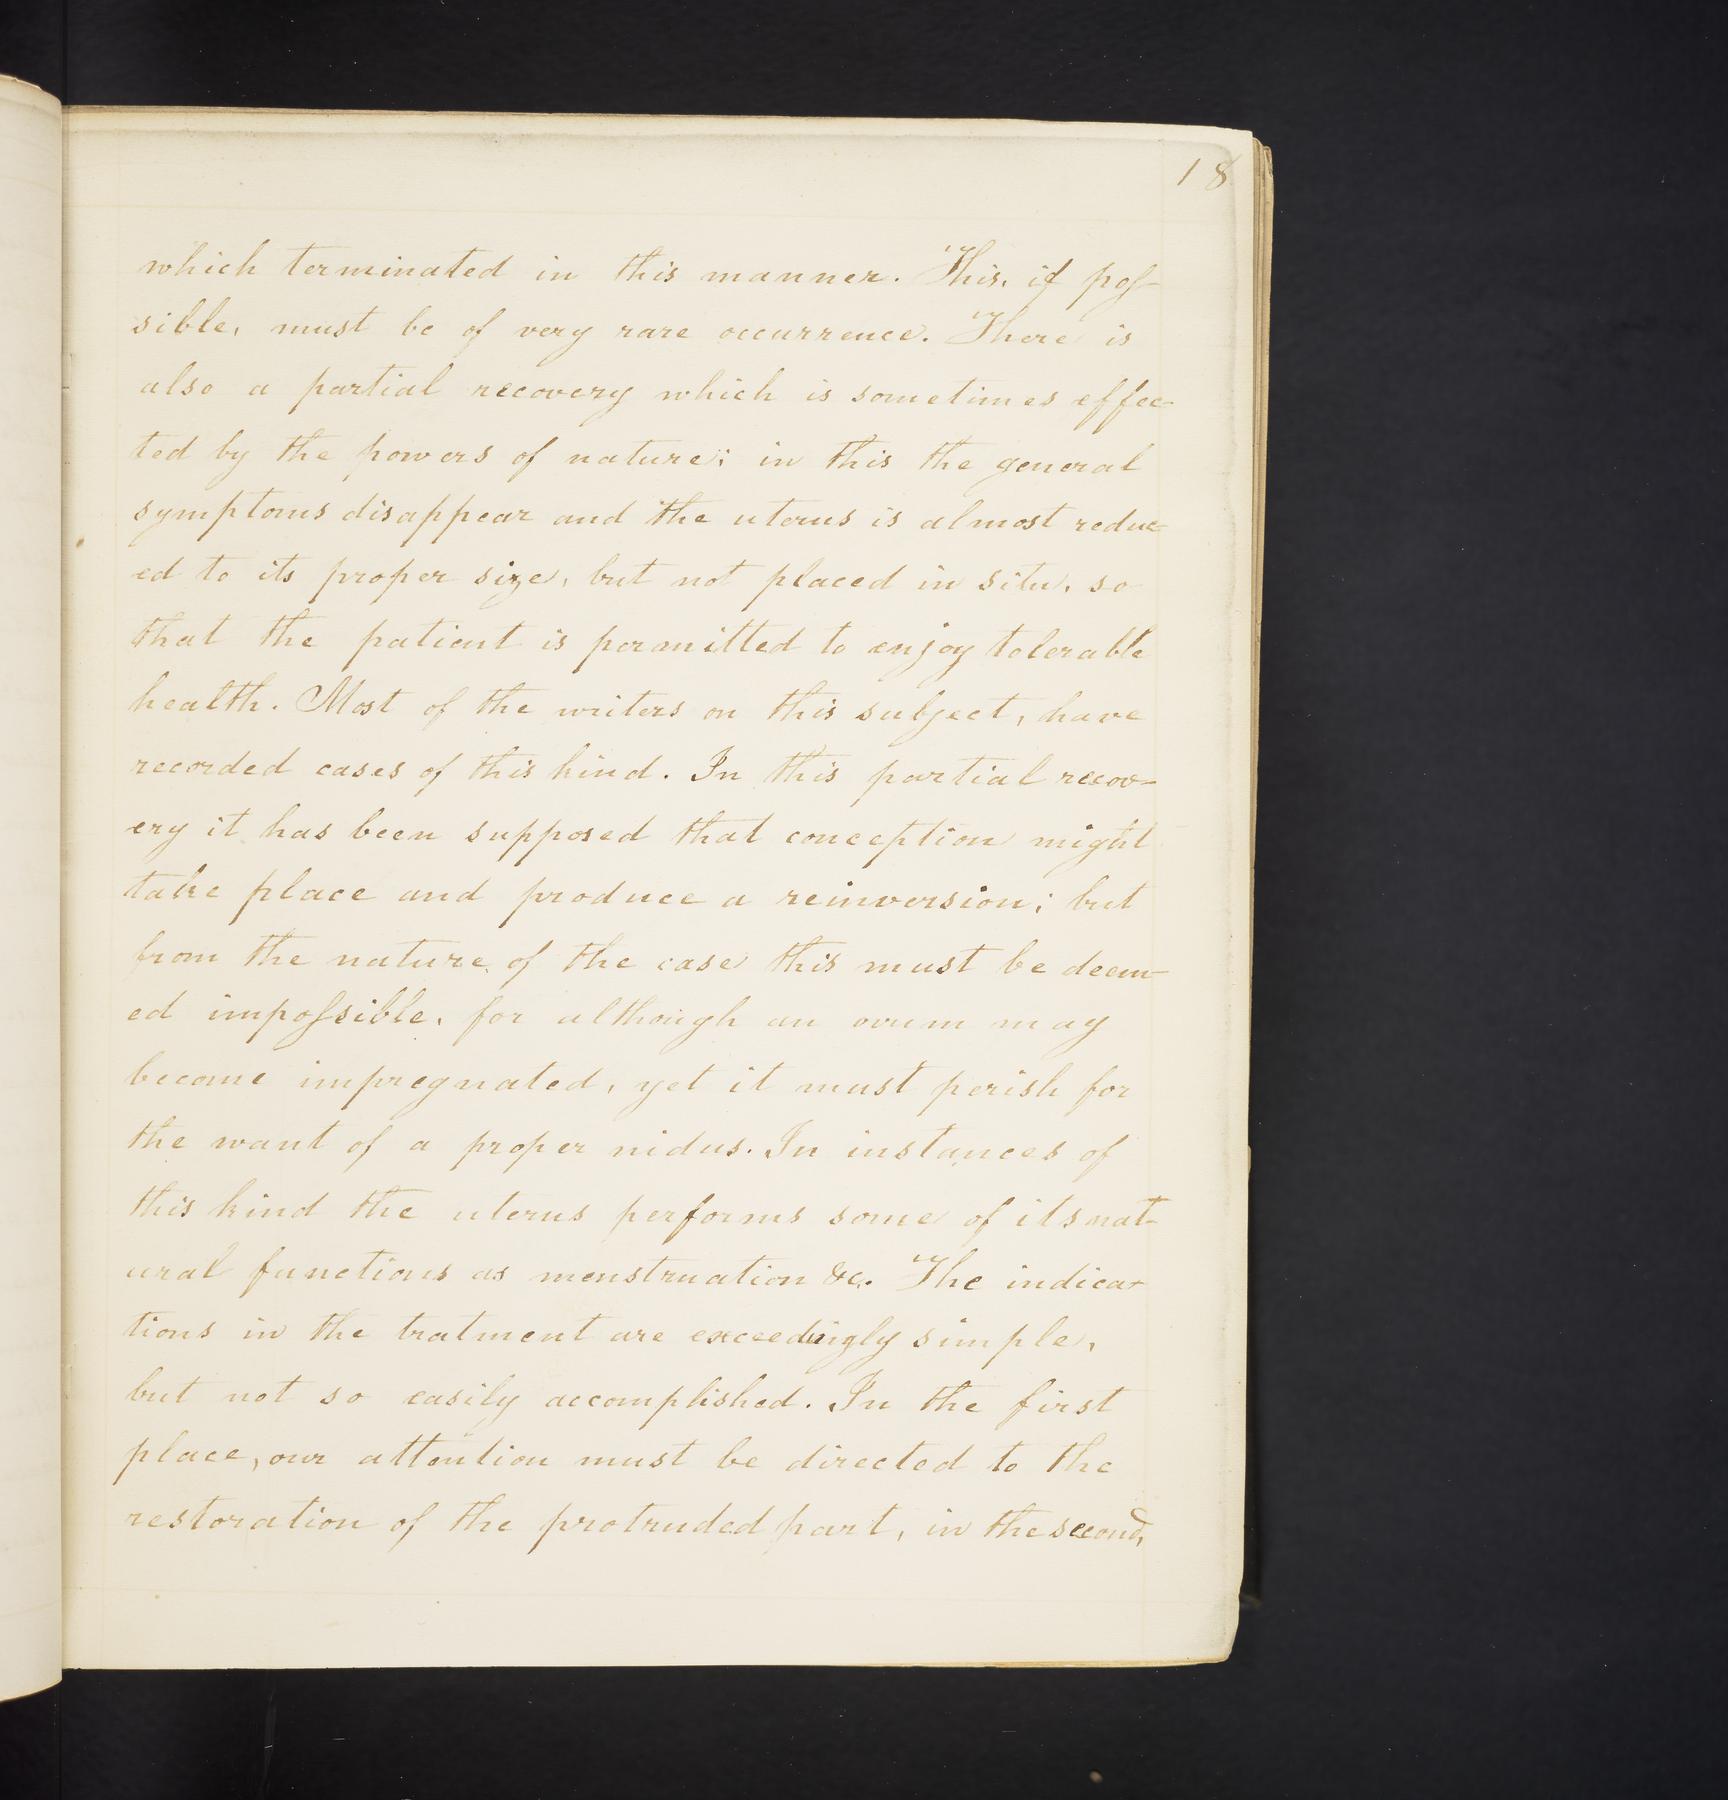 18
which terminated in this manner. This, if pos-
sible, must be of very rare occurrence. There is
also a partial recovery which is sometimes effec-
ted by the powers of nature; in this the general
symptoms disappear and the uterus is almost reduc-
ed to its proper size, but not placed in situ, so
that the patient is permitted to enjoy tolerable
health. Most of the writers on this subject, have
recorded cases of this kind. In this partial recov-
ery it has been supposed that conception might
take place and produce a reinversion; but
from the nature of the case this must be deem-
ed impoſsible, for although an ovum may
become impregnated, yet it must perish for
the want of a proper nidus. In instances of
this kind the uterus performs some of its nat-
ural functions as menstruation &c. The indica-
tions in the tratment are exceedingly simple,
but not so easily accomplished. In the first
place, our attention must be directed to the
restoration of the protruded part, in the second,